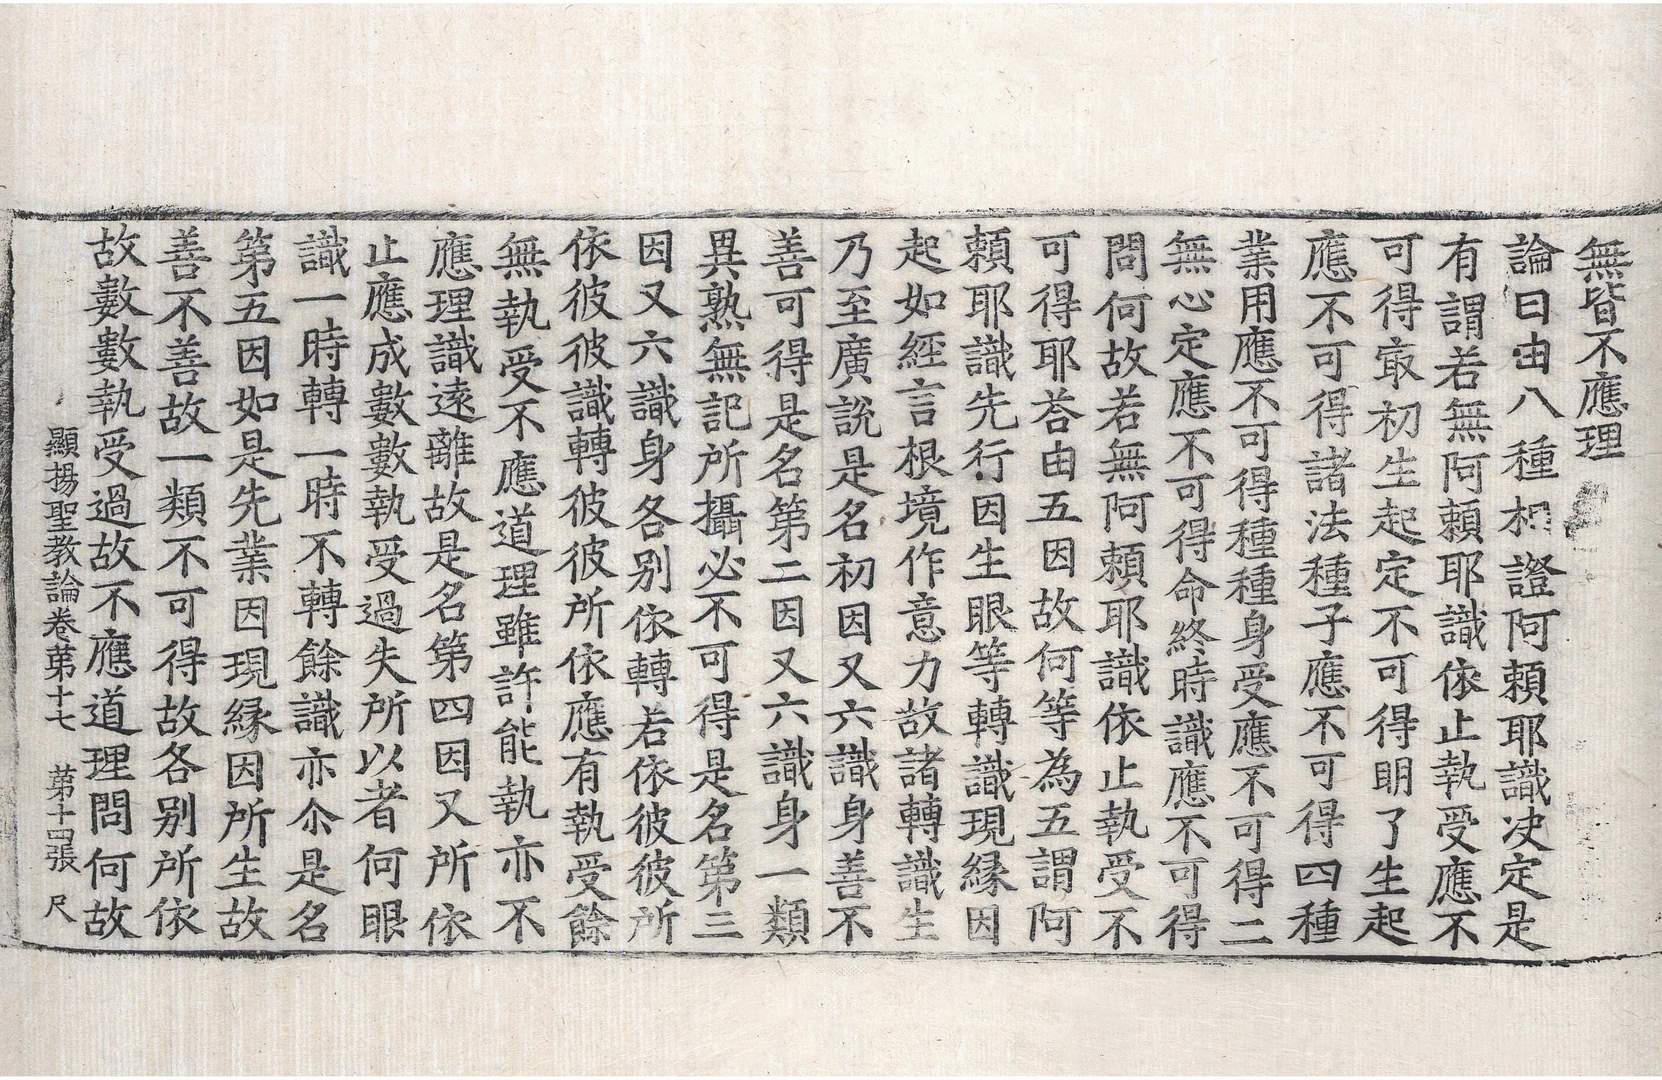 無皆不應理
論曰由八種相證阿頼耶識决定是
有謂若無阿頼耶識依止執受應不
可得㝡初生起定不可得明了生起
應不可得諸法種子應不可得四種
業用應不可得種種身受應不可得二
無心定應不可得命終時識應不可得
問何故若無阿頼耶識依止執受不
可得耶荅由五因故何等為五謂阿
頼耶識先行因生眼等轉識現縁因
起如經言根境作意力故諸轉識生
乃至廣說是名初因又六識身善不
善可得是名第二因又六識身一類
異熟無記所攝必不可得是名第三
因又六識身各别依轉若依彼彼所
依彼彼識轉彼彼所依應有執受餘
無執受不應道理雖許能執亦不
應理識遠離故是名第四因又所依
止應成數數執受過失所以者何眼
識一時轉一時不轉餘識亦尒是名
第五因如是先業因現縁因所生故
善不善故一類不可得故各别所依
故數數執受過故不應道理問何故
顯揚聖教論卷苐十七 苐十四張 尺